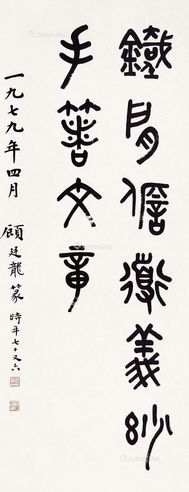 鐵肩儋道義玅
手著文章
一九七九年四月 顧廷龍篆 時年七十又六